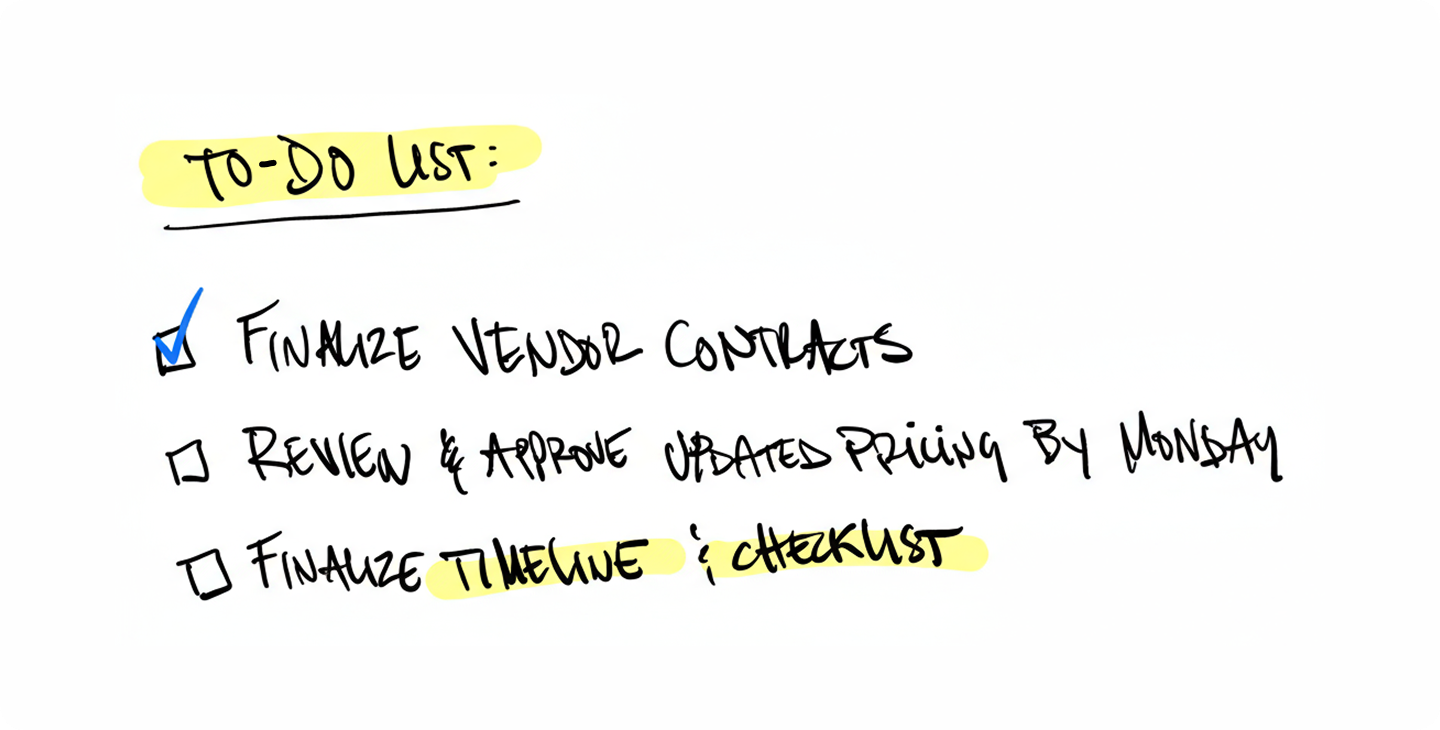 TO-DO LIST:
FINALIZE VENDOR CONTRACTS
REVIEW & APPROVE UPDATED PRICING BY MONDAY
FINALIZE TIMELINE & CHECKLIST